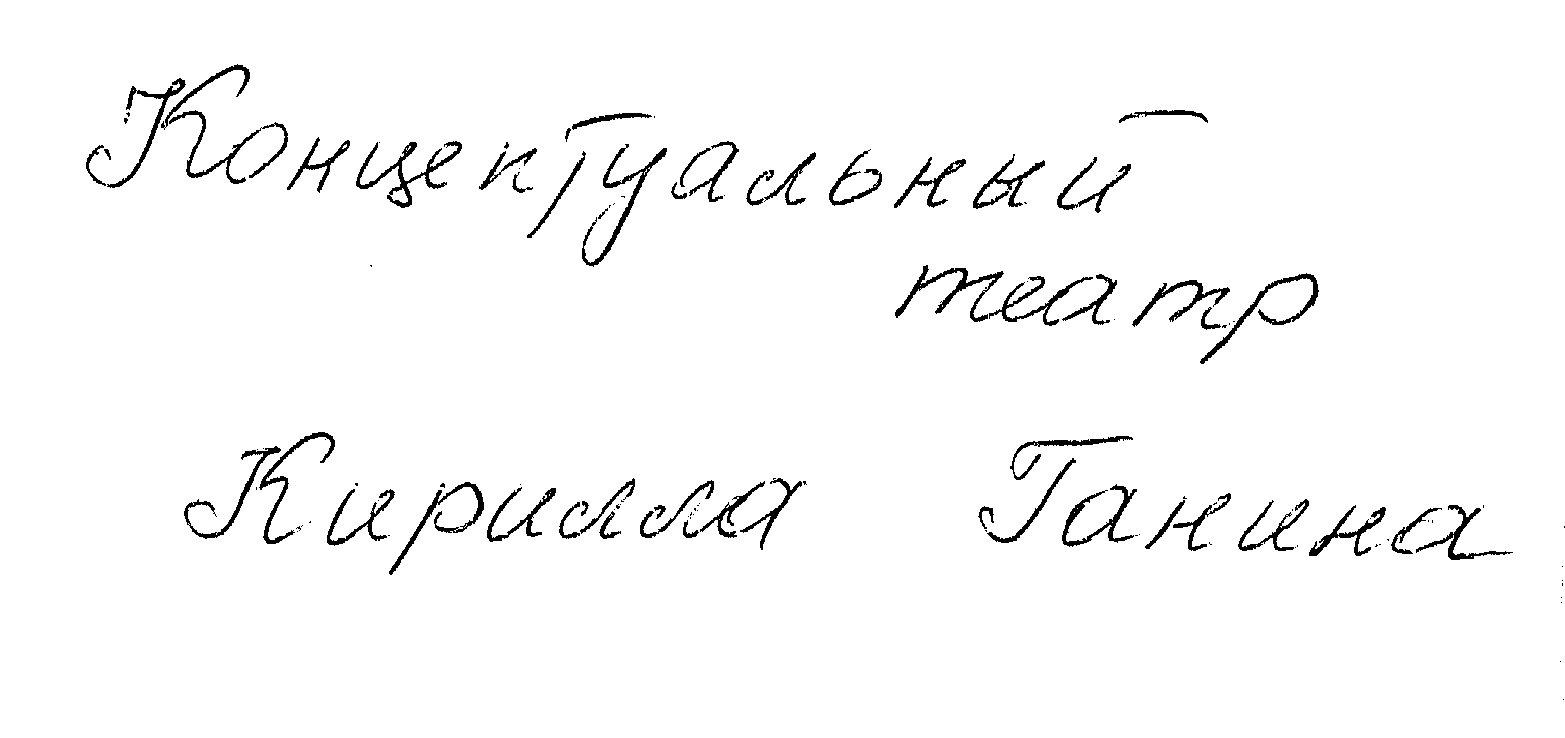 Концептуальный
театр
Кирилла Ганина